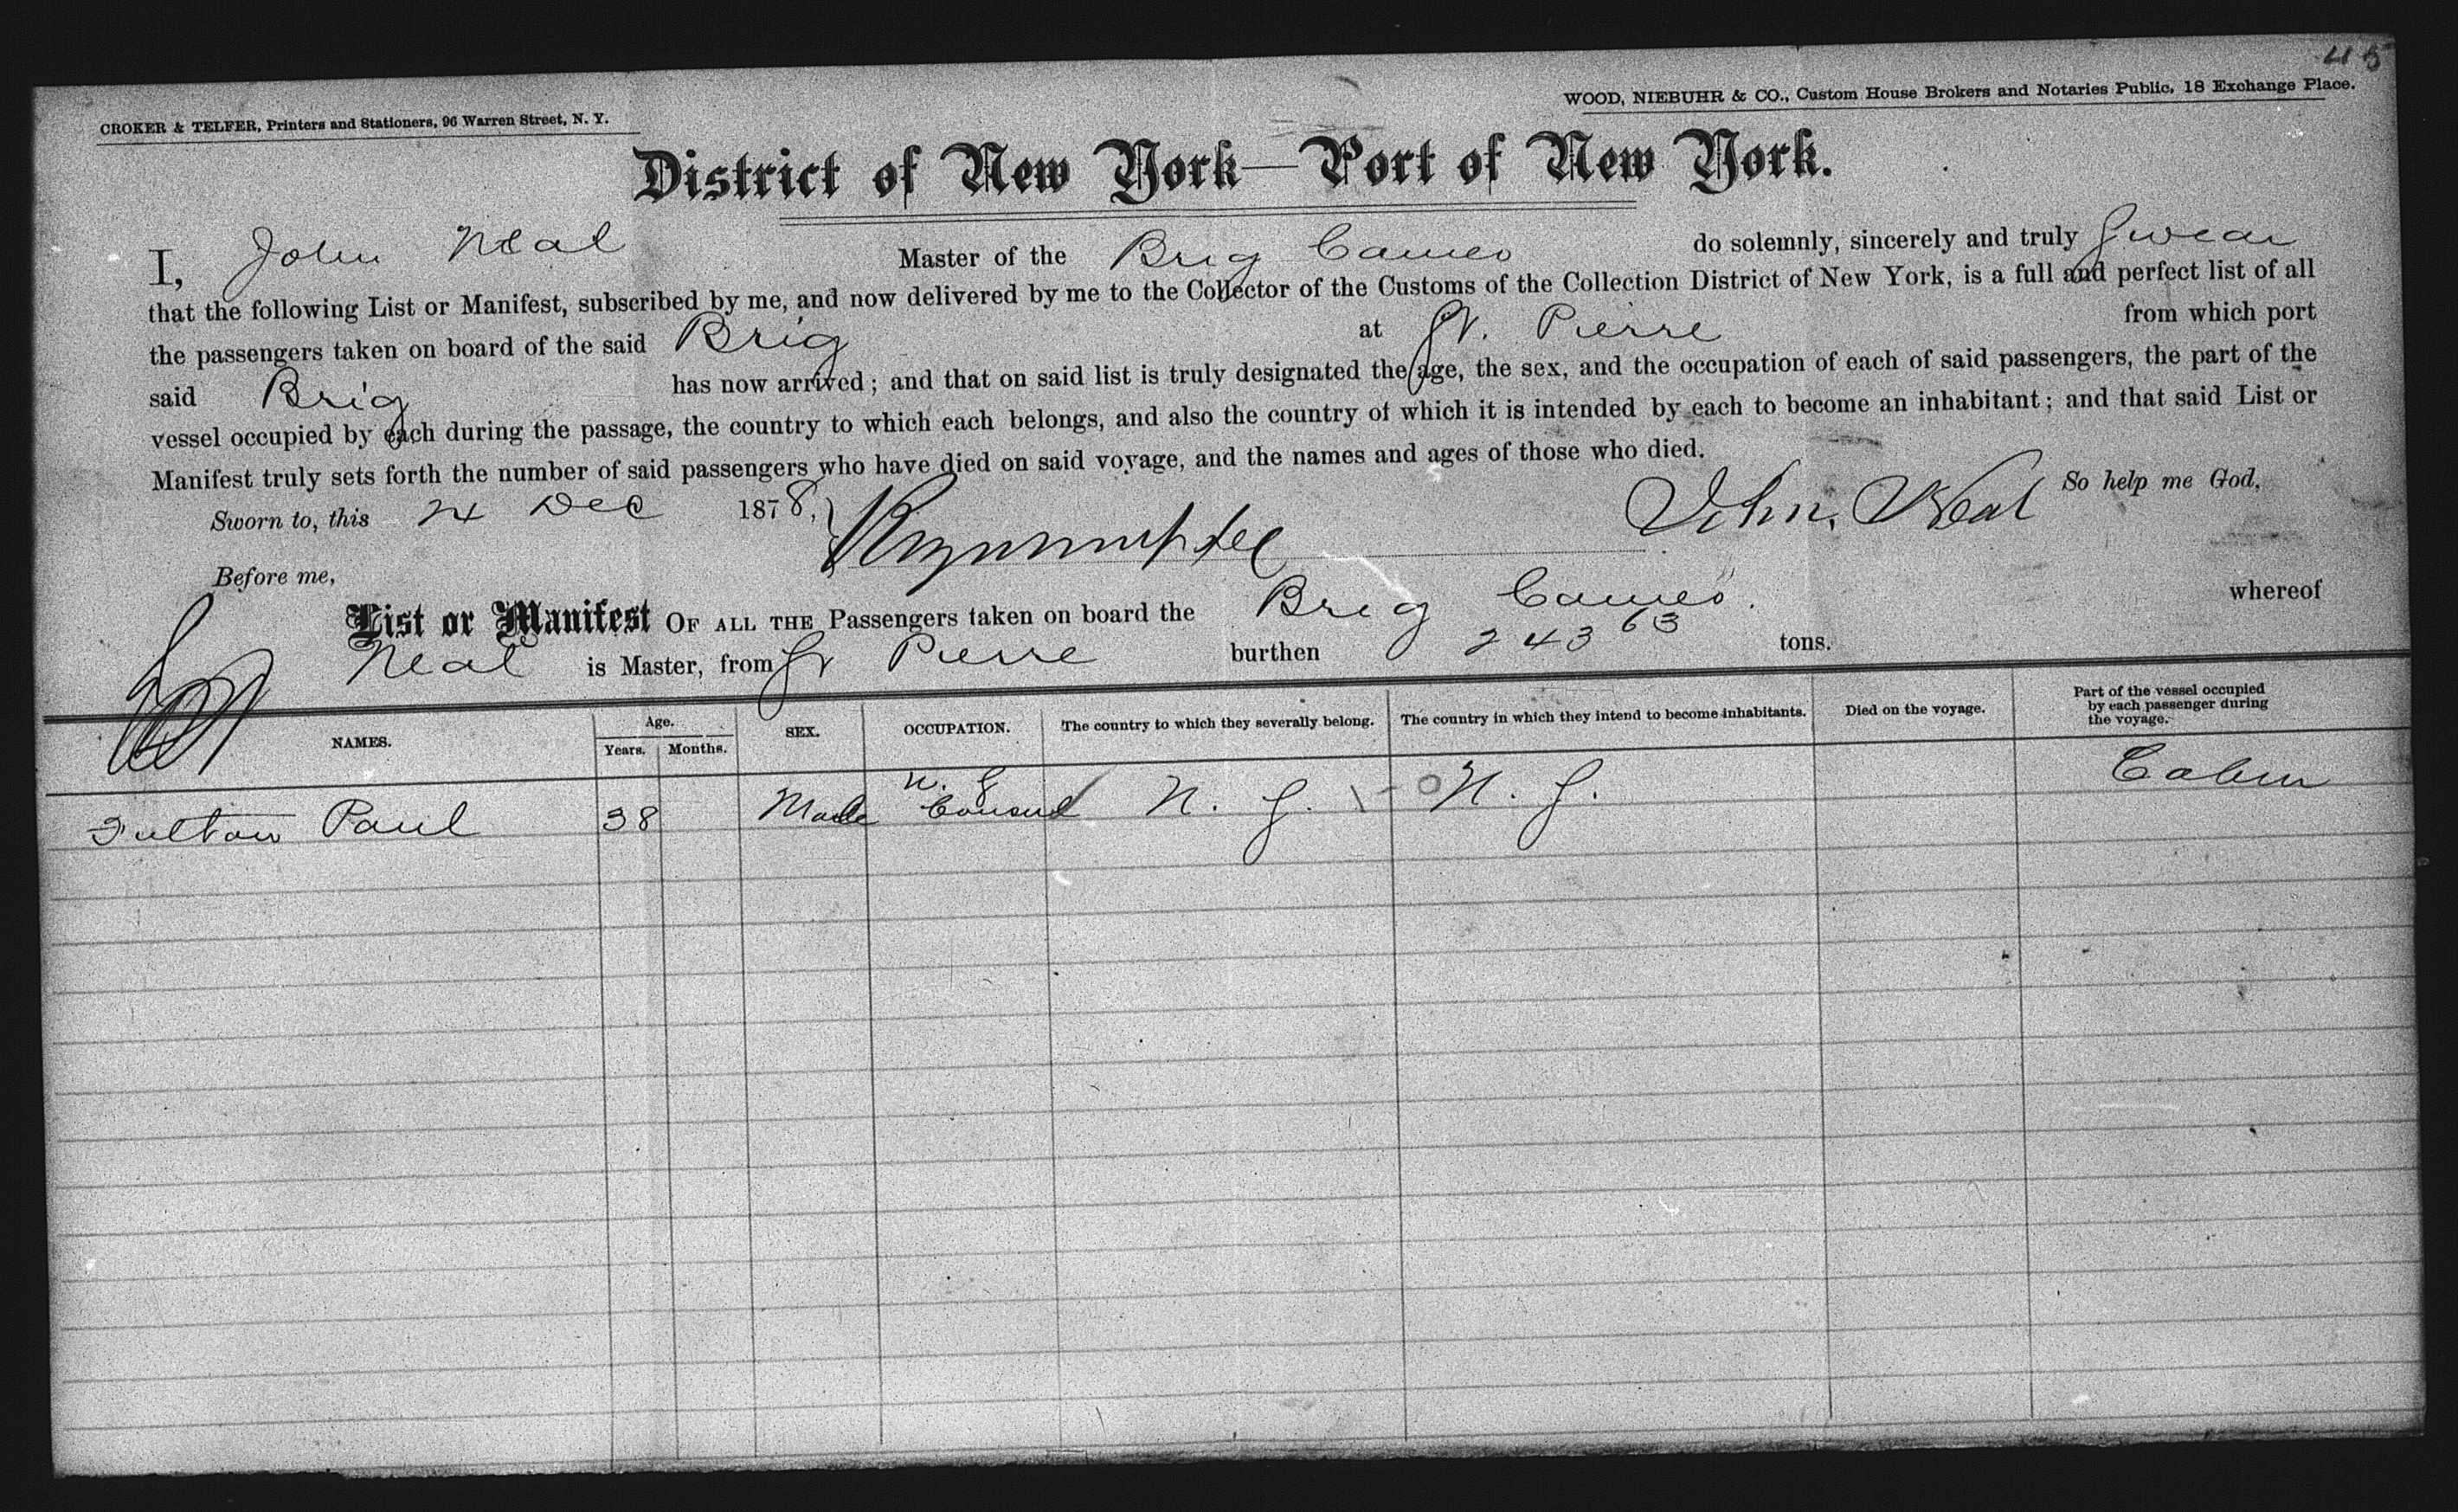 45
CROKER & TELFER, Printers and Stationers, 96 Warren Street, N. Y.
WOOD, NIEBUHR & CO., Custom House Brokers and Notaries Public, 18 Exchange Place.
District of New York—Port of New York.
I, John Neal Master of the Brig Cameo do solemnly, sincerely and truly Swear
that the following List or Manifest, subscribed by me, and now delivered by me to the Collector of the Customs of the Collection District of New York, is a full and perfect list of all
the passengers taken on board of the said Brig at St. Pierre from which port
said Brig has now arrived; and that on said list is truly designated the age, the sex, and the occupation of each of said passengers, the part of the
vessel occupied by each during the passage, the country to which each belongs, and also the country of which it is intended by each to become an inhabitant; and that said List or
Manifest truly sets forth the number of said passengers who have died on said voyage, and the names and ages of those who died.
Sworn to, this 24 Dec 1878, John Neal So help me God,
Before me,
List or Manifest OF ALL THE Passengers taken on board the Brig Cameo. whereof
Neal is Master, from St Pierre burthen 243 63 tons.
NAMES. Age. Years. Months. SEX. OCCUPATION. The country to which they severally belong. The country in which they intend to become inhabitants. Died on the voyage. Part of the vessel occupied by each passenger during the voyage.
Fulton Paul 38 Male U. S Consul U. S. U. S. Cabin